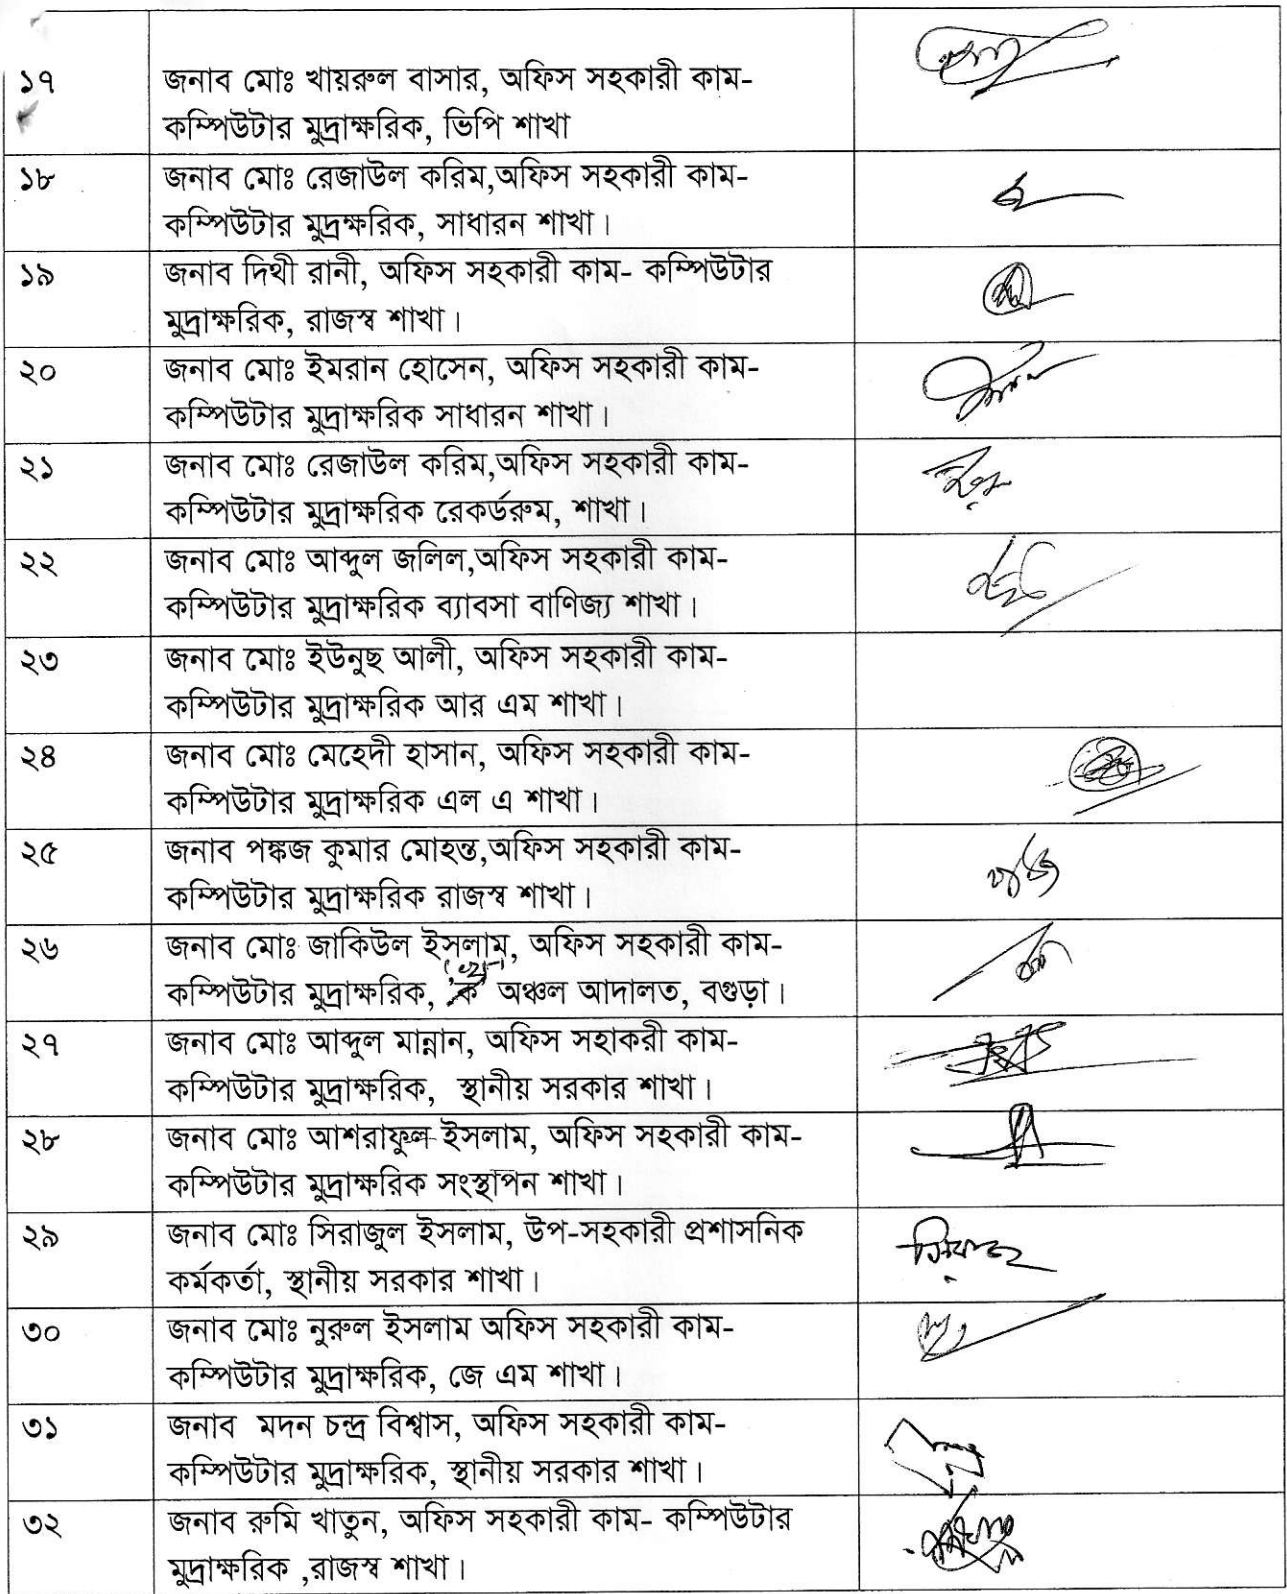 ১৭ জনাব মোঃ খায়রুল বাসার, অফিস সহকারী কাম-
কম্পিউটার মুদ্রাক্ষরিক, ভিপি শাখা
১৮ জনাব মোঃ রেজাউল করিম,অফিস সহকারী কাম-
কম্পিউটার মুদ্রক্ষরিক, সাধারন শাখা।
১৯ জনাব দিথী রানী, অফিস সহকারী কাম- কম্পিউটার
মুদ্রাক্ষরিক, রাজস্ব শাখা।
২০ জনাব মোঃ ইমরান হোসেন, অফিস সহকারী কাম-
কম্পিউটার মুদ্রাক্ষরিক সাধারন শাখা।
২১ জনাব মোঃ রেজাউল করিম,অফিস সহকারী কাম-
কম্পিউটার মুদ্রাক্ষরিক রেকর্ডরুম, শাখা।
২২ জনাব মোঃ আব্দুল জলিল,অফিস সহকারী কাম-
কম্পিউটার মুদ্রাক্ষরিক ব্যাবসা বাণিজ্য শাখা।
২৩ জনাব মোঃ ইউনুছ আলী, অফিস সহকারী কাম-
কম্পিউটার মুদ্রাক্ষরিক আর এম শাখা।
২৪ জনাব মোঃ মেহেদী হাসান, অফিস সহকারী কাম-
কম্পিউটার মুদ্রাক্ষরিক এল এ শাখা।
২৫ জনাব পঙ্কজ কুমার মোহন্ত,অফিস সহকারী কাম-
কম্পিউটার মুদ্রাক্ষরিক রাজস্ব শাখা।
২৬ জনাব মোঃ জাকিউল ইসলাম, অফিস সহকারী কাম-
কম্পিউটার মুদ্রাক্ষরিক, ক অঞ্চল আদালত, বগুড়া।
২৭ জনাব মোঃ আব্দুল মান্নান, অফিস সহাকরী কাম-
কম্পিউটার মুদ্রাক্ষরিক, স্থানীয় সরকার শাখা।
২৮ জনাব মোঃ আশরাফুল ইসলাম, অফিস সহকারী কাম-
কম্পিউটার মুদ্রাক্ষরিক সংস্থাপন শাখা।
২৯ জনাব মোঃ সিরাজুল ইসলাম, উপ-সহকারী প্রশাসনিক
কর্মকর্তা, স্থানীয় সরকার শাখা।
৩০ জনাব মোঃ নুরুল ইসলাম অফিস সহকারী কাম-
কম্পিউটার মুদ্রাক্ষরিক, জে এম শাখা।
৩১ জনাব মদন চন্দ্র বিশ্বাস, অফিস সহকারী কাম-
কম্পিউটার মুদ্রাক্ষরিক, স্থানীয় সরকার শাখা।
৩২ জনাব রুমি খাতুন, অফিস সহকারী কাম- কম্পিউটার
মুদ্রাক্ষরিক ,রাজস্ব শাখা।